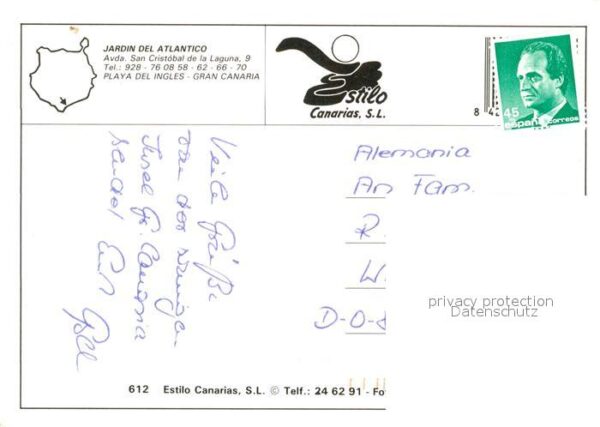 JARDIN DEL ATLANTICO
Avda. San Cristóbal de la Laguna, 9
Tel.: 928 - 76 08 58 - 62 - 66 - 70
PLAYA DEL INGLES - GRAN CANARIA
Estilo
Canarias, S.L.
8 42
45
españa correos
Viele Grüße
von der sonnigen
Insel Gr. Canaria
sendet
Alemania
An Fam.
R
W
D-O-8
privacy protection
Datenschutz
612 Estilo Canarias, S.L. © Telf.: 24 62 91 - Fo